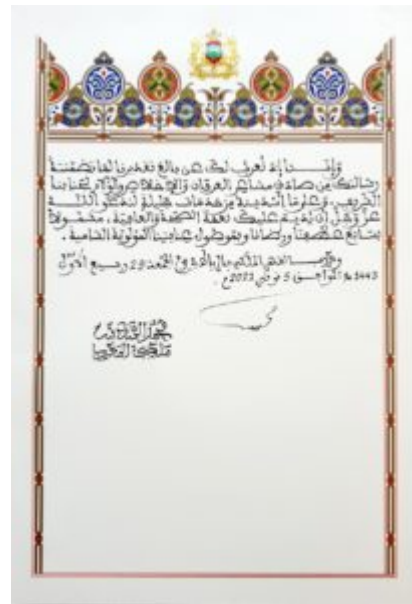 وإننا إذ نعرب لك عن بالغ تقديرنا لما تضمنته
رسالتك من صادق مشاعر العرفان والإخلاص والولاء لجنابنا
الشريف، وعلى ما أسديته من خدمات جليلة، لندعو الله
عز وجل أن يديم عليك نعمة الصحة والعافية، مشمولا
بسابغ عطفنا ورضانا وبموصول عنايتنا المولوية السامية.
وحرر بالقصر الملكي بالرباط في الجمعة 29 ربيع الأول
1443 هـ الموافق 5 نونبر 2021م.
محمد السادس
ملك المغرب